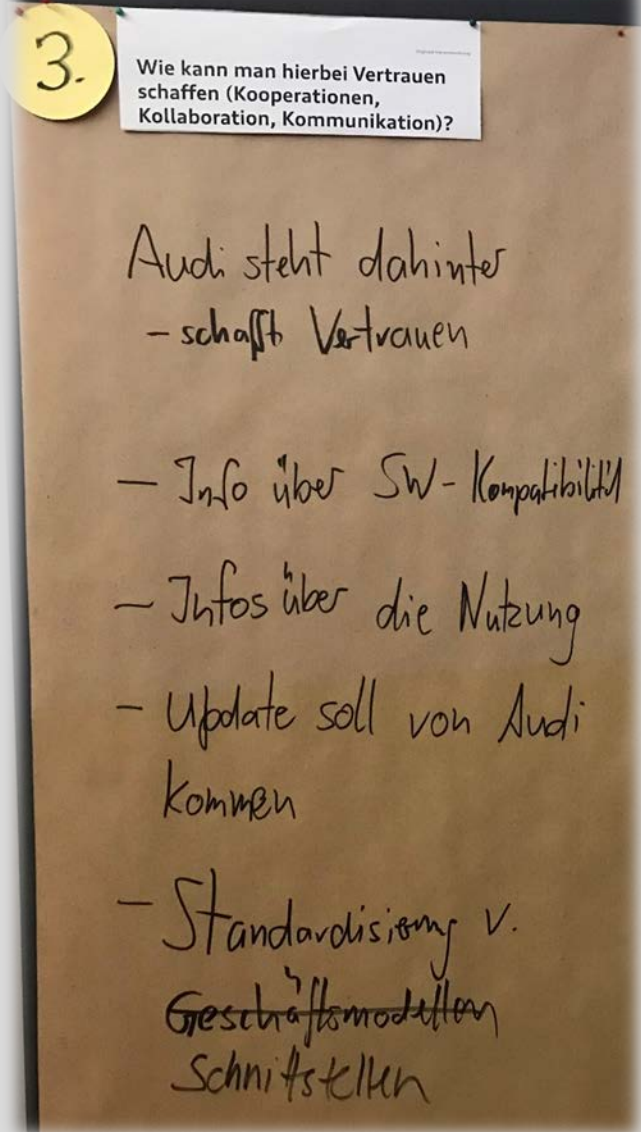 3.
Wie kann man hierbei Vertrauen
schaffen (Kooperationen,
Kollaboration, Kommunikation)?
Audi steht dahinter
- schafft Vertrauen
- Info über SW-Kompatibilität
- Infos über die Nutzung
- Update soll von Audi
kommen
- Standardisierung v.
Geschäftsmodellen
Schnittstellen